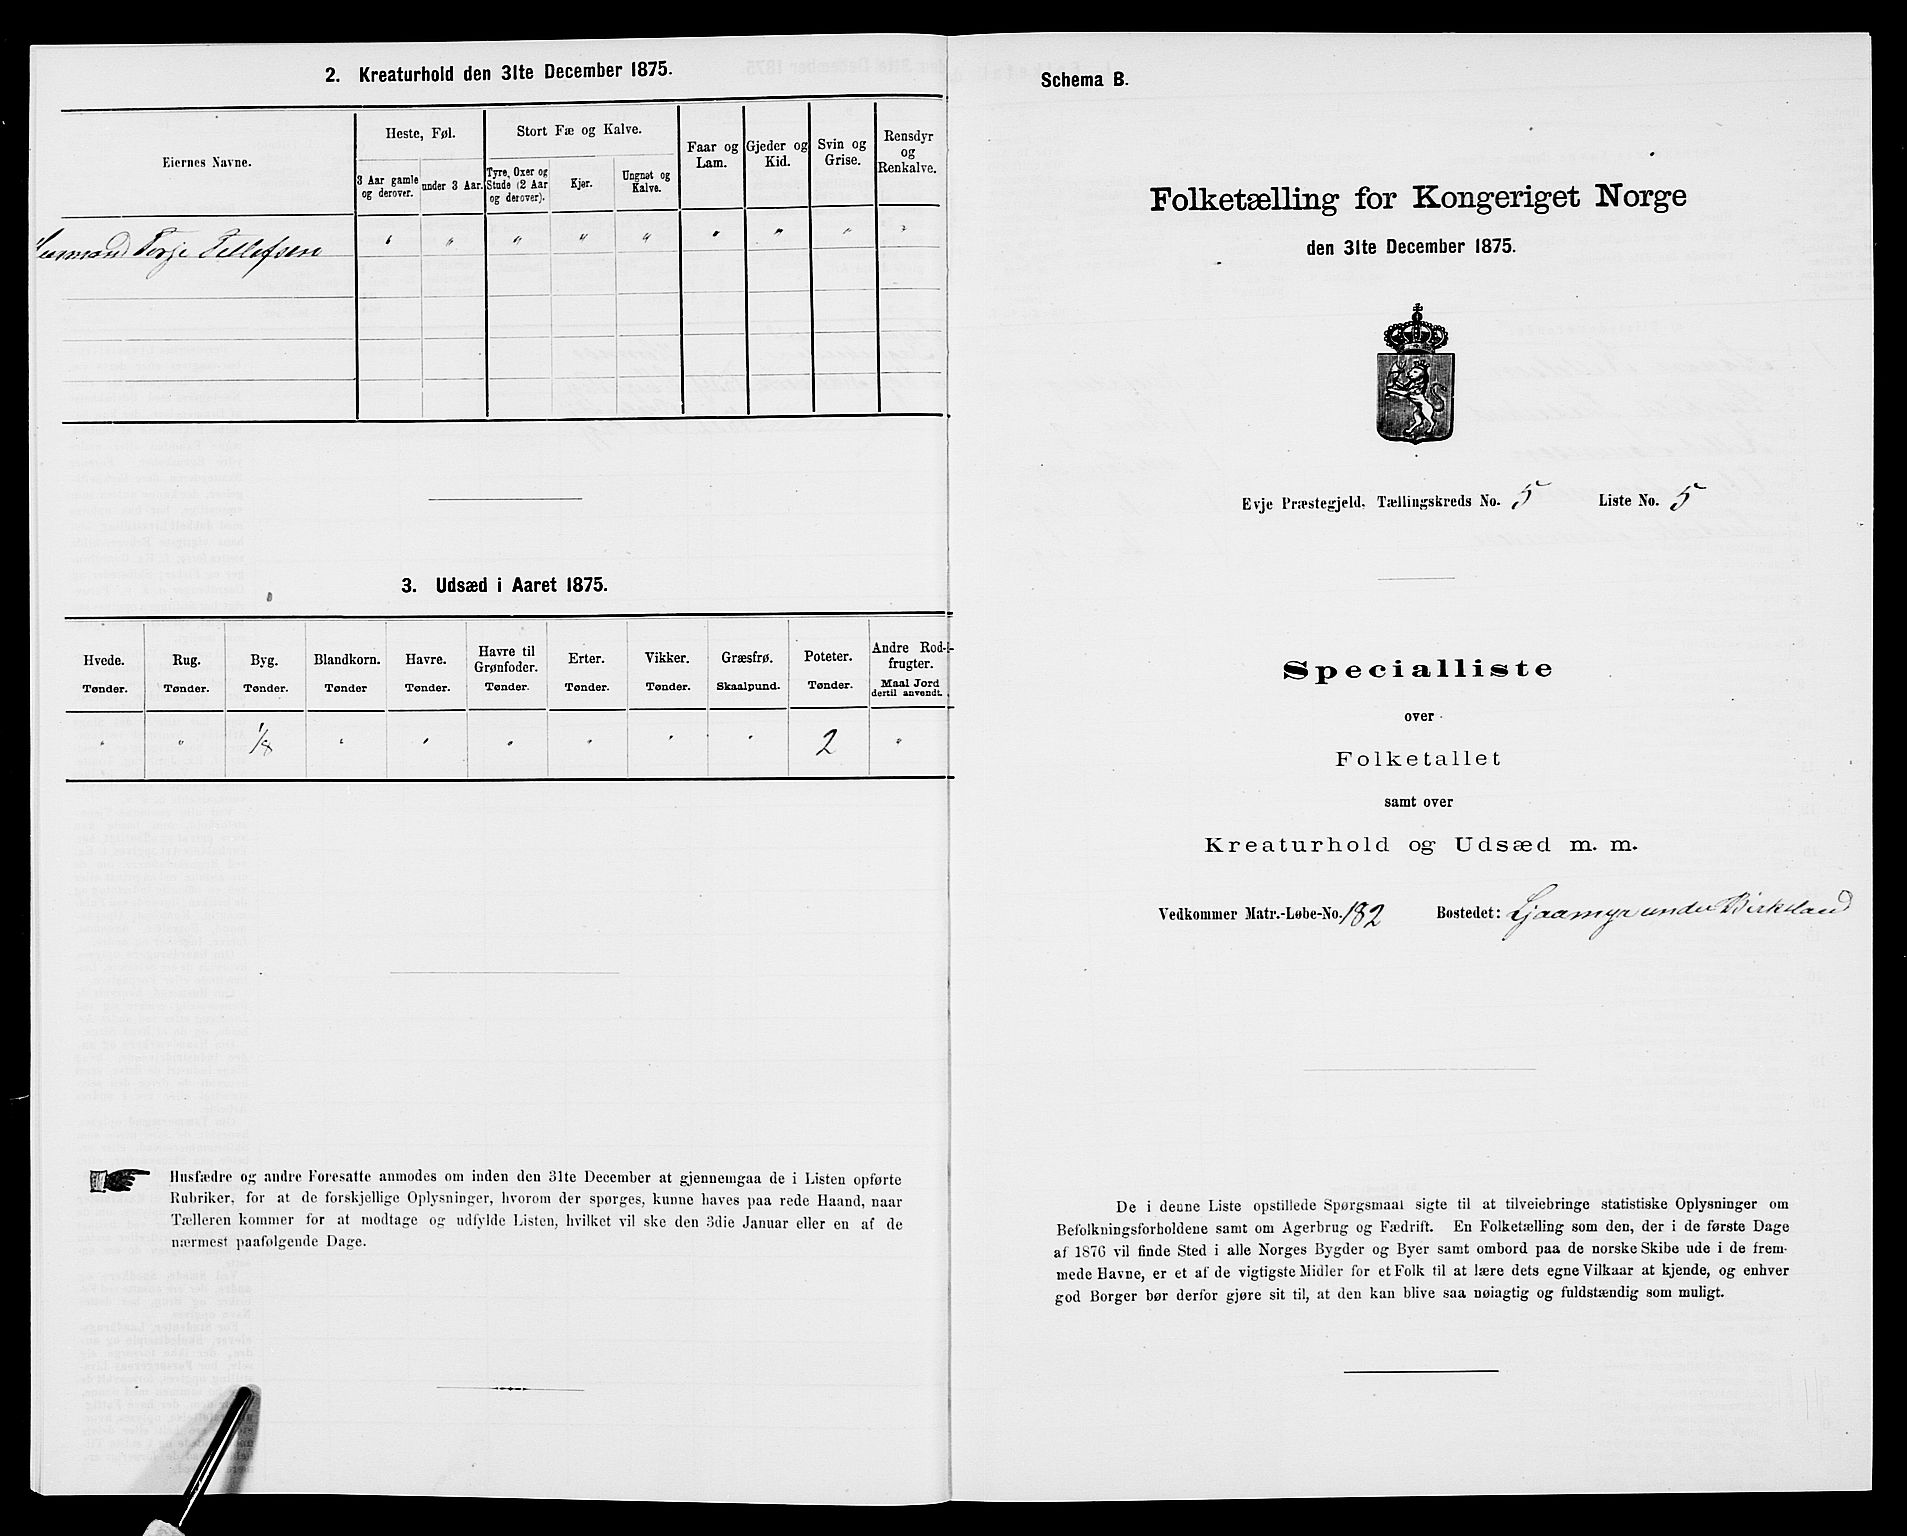 2. Kreaturhold den 31te December 1875.
Eiernes Navne.
Heste, Føl.
Stort Fæ og Kalve.
Faar og Lam.
Gjeder og Kid.
Svin og Grise.
Rensdyr og Renkalve.
3 Aar gamle og derover.
under 3 Aar.
Tyre, Oxer og Stude (2 Aar og derover).
Kjør.
Ungnøt og Kalve.
Husmand Torje Tellefsen " " " " " " " " "
3. Udsæd i Aaret 1875.
Hvede. Rug. Byg. Blandkorn. Havre. Havre til Grønfoder. Erter. Vikker. Græsfrø. Poteter. Andre Rodfrugter.
Tønder. Tønder. Tønder. Tønder Tønder. Tønder. Tønder. Tønder. Skaalpund. Tønder. Maal Jord dertil anvendt.
" " 1/8 " " " " " " 2 "
Husfædre og andre Foresatte anmodes om inden den 31te December at gjennemgaa de i Listen opførte
Rubriker, for at de forskjellige Oplysninger, hvorom der spørges, kunne haves paa rede Haand, naar
Tælleren kommer for at modtage og udfylde Listen, hvilket vil ske den 3die Januar eller en af de
nærmest paafølgende Dage.
Schema B.
Folketælling for Kongeriget Norge
den 31te December 1875.
Evje Præstegjeld, Tællingskreds No. 5 Liste No. 5
Specialliste
over
Folketallet
samt over
Kreaturhold og Udsæd m. m.
Vedkommer Matr.-Løbe-No. 182 Bostedet: Ljaamyr under Birkeland
De i denne Liste opstillede Spørgsmaal sigte til at tilveiebringe statistiske Oplysninger om
Befolkningsforholdene samt om Agerbrug og Fædrift. En Folketælling som den, der i de første Dage
af 1876 vil finde Sted i alle Norges Bygder og Byer samt ombord paa de norske Skibe ude i de frem-
mede Havne, er et af de vigtigste Midler for et Folk til at lære dets egne Vilkaar at kjende, og enhver
god Borger bør derfor gjøre sit til, at den kan blive saa nøiagtig og fuldstændig som muligt.